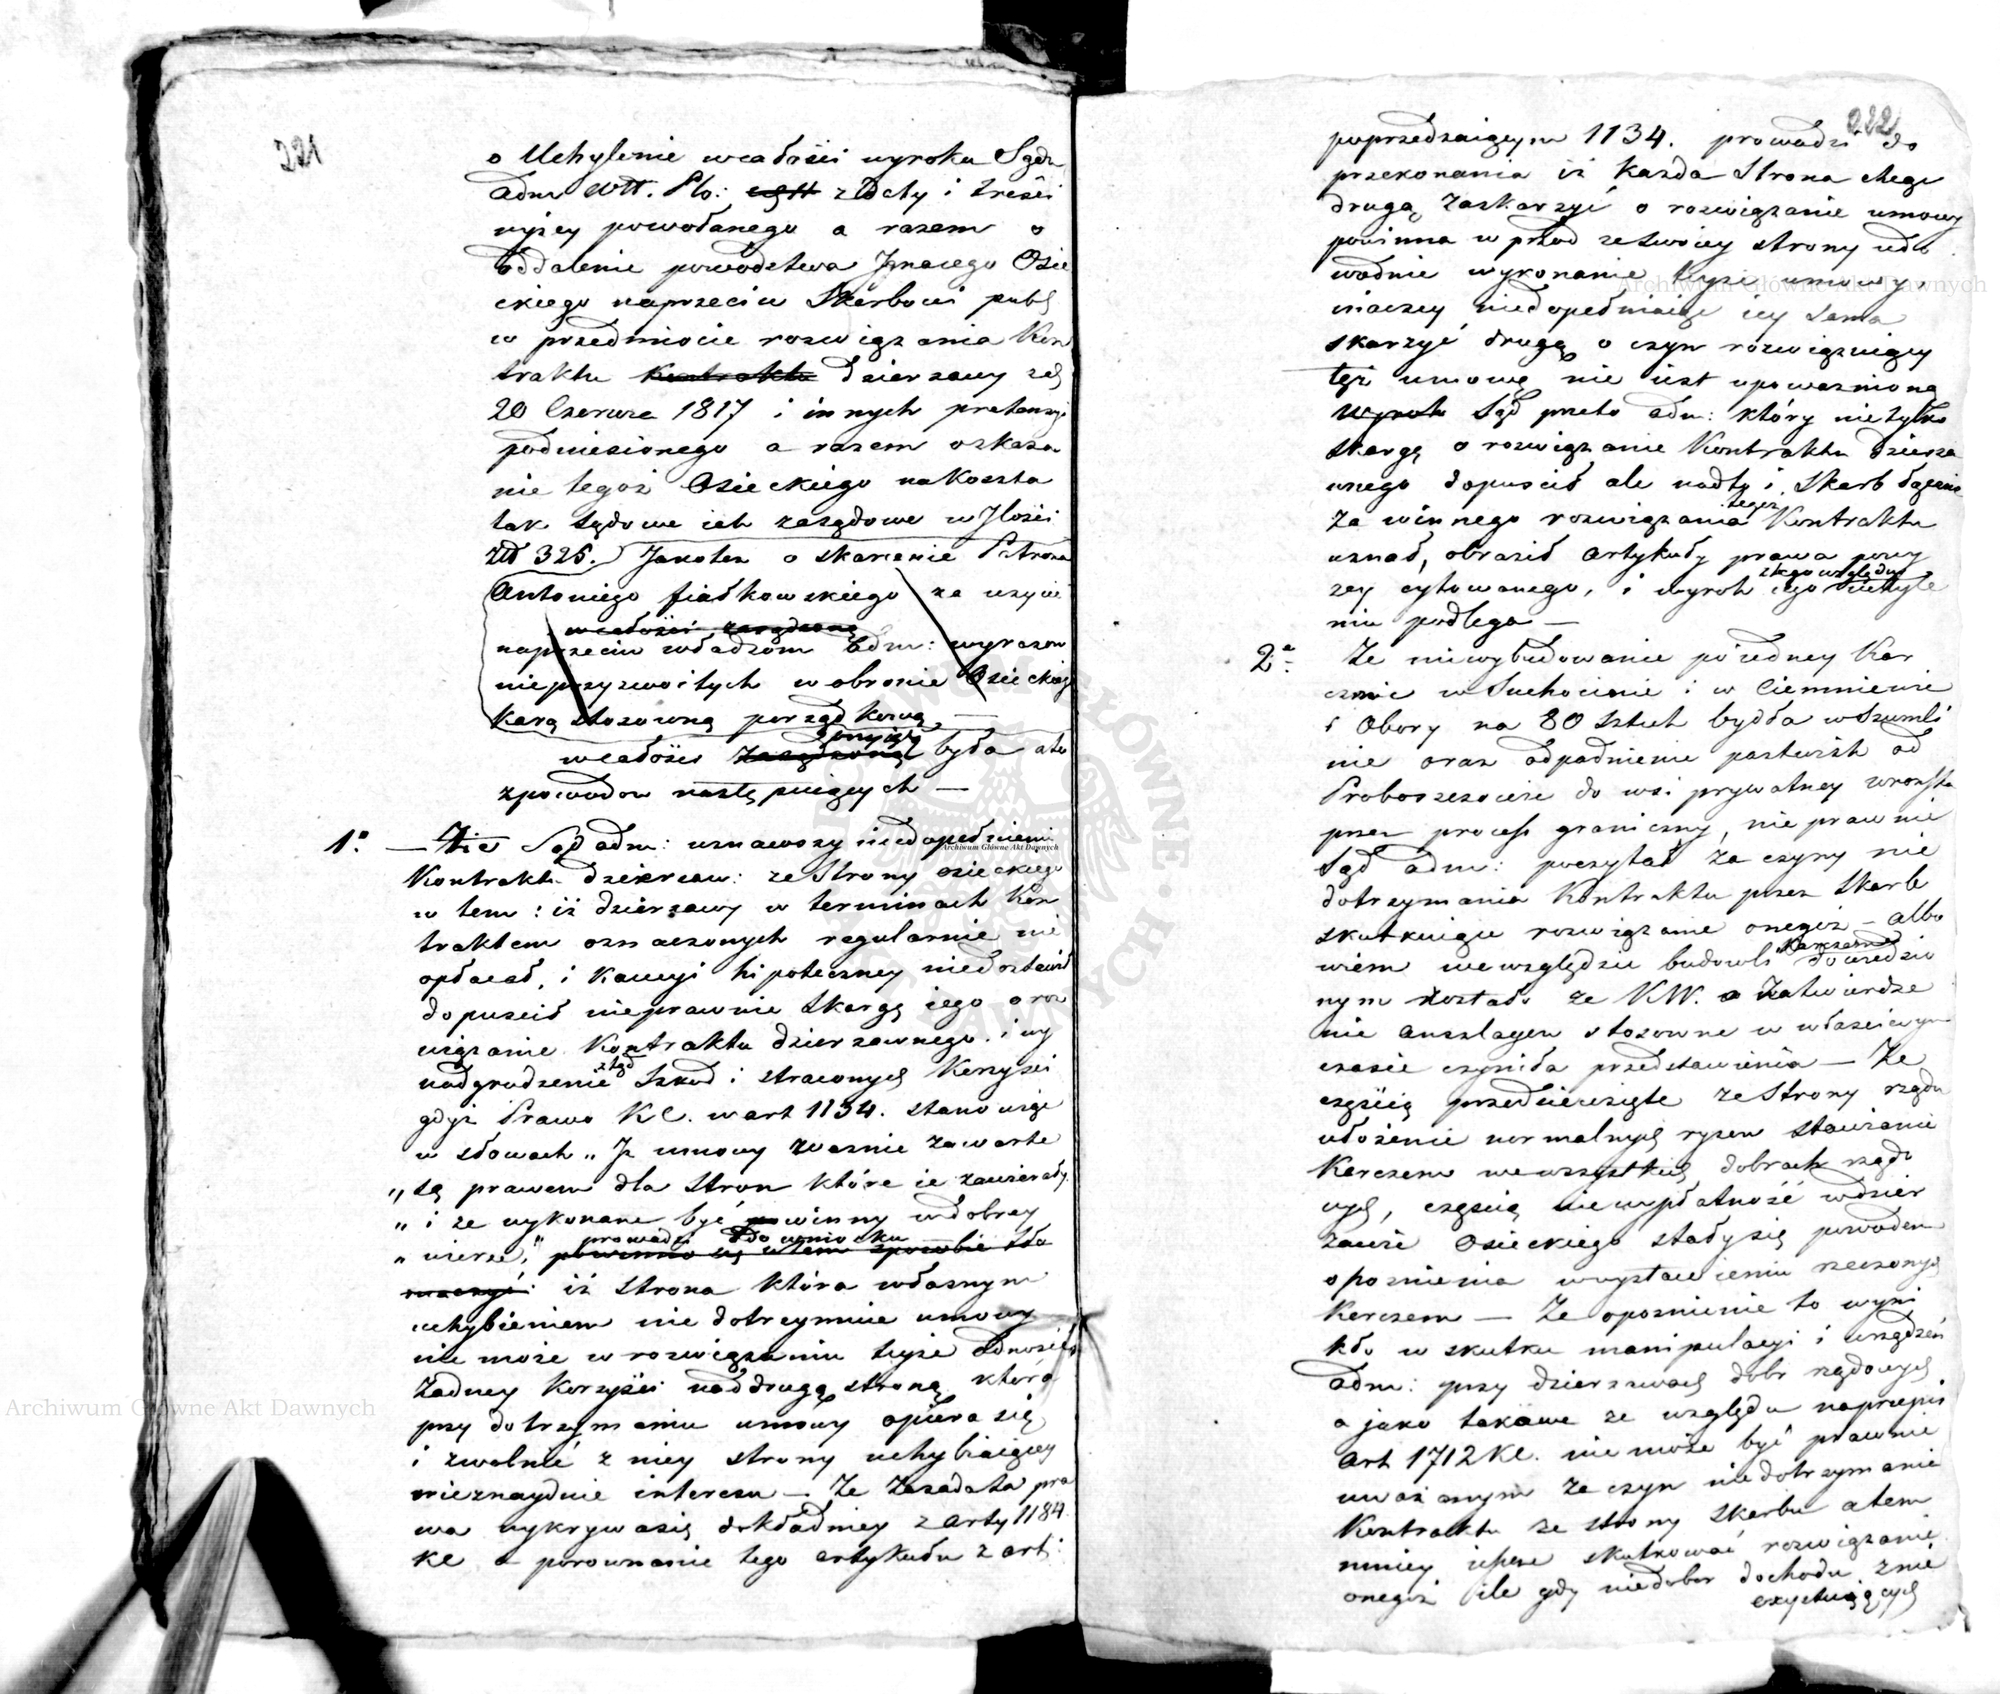 221
o Uchylenie wcałości wyroku Sądu
adm Wtt. Pło: z Daty i treści
wyżey powołanego a razem o
oddalenie powodztwa Jgnacego Osie
ckiego naprzeciw Skarbowi publ
w przedmiocie rozwiązania Kon
traktu Kontraktu Dzierżawy zd
20 Czerwca 1817 i innych pretensyi
podniesionego a razem o skaza
nie tegoż Osieckiego na Koszta
tak sądowe ich zasądowe w Jlości
Zł 325. Jakotez o skaranie Patrona
Antoniego fiałkowskiego za uzycie
wcałości zasądzoną
naprzeciw władzom adm: wyrazow
nieprzyzwoitych w obronie Osieckieg
Karą stosowną porządkową —
przyiętą
wcałości zasądzoną była a to
zpowodow następuiących —
1º. — Że Sąd adm: uznawszy niedopełnienie
Kontraktu dzierzaw: ze Strony osieckiego
w tem: iż dzierzawy w terminach Kon
traktem oznaczonych regularnie nie
opłacał, i Kaucyi hipoteczney niedostawił
dopuscił nieprawnie Skargę iego o roz
wiązanie Kontraktu dzierzawnego i wy
ztąd
nadgrodzenie Szkod i straconych Korzyści
gdyż Prawo KC. w art 1134. stanowiąc
w słowach „Iż umowy waznie zawarte
„są prawem dla Stron które ie zawierały
„i ze wykonane być powinny wdobrey
prowadzi do wniosku
„wierze," powinno się w tem sposobie tło
maczyć: iż strona która własnym
uchybieniem nie dotrzymuie umowy
nie może w rozwiązaniu teyże odnosić
żadney Korzyści nad drugą stroną która
przy dotrzymaniu umowy opiera się
i zwolnić z niey strony uchybiaiącey
nieznayduie interesu — Że zasada ta pra
wa wykrywa się dokładniey z arty 1184
KC a porownanie tego artykułu z art:
222
poprzedzaiącym 1134. prowadzi do
przekonania iż Każda Strona chcąc
drugą zaskarzyć o rozwiązanie umowy
powinna wprzod ze swoiey strony udo
wodnić wykonanie teyże umowy,
inaczey niedopełniaiąc iey sama
skarzyć drugą o czyn rozwiązuiący
tęż umowę nie iest upowaznioną
Wyrok Sąd przeto adm: który nietylko
skargę o rozwiązanie Kontraktu dzierza
wnego dopuścił ale nadto i Skarb łącznie
tegoż
za winnego rozwiązania Kontraktu
uznał, obraził Artykuły prawa powy
z tego względu
zey cytowanego, i wyrok iego uchyle
niu podlega —
2º. Ze niewybudowanie poiedney Kar
czmie w Suchocinie i w Ciemniewie
i Obory na 80 Sztuk bydła w Szumli
nie oraz odpadnienie pastwisk od
Proboszczowie do wsi prywatney wronska
przez proces graniczny, nie prawnie
Sąd adm: poczytał za czyny nie
dotrzymania Kontraktu przez Skarb
skutkuiące rozwiązanie onegoż — albo
Karczmne
wiem we względzie budowli dowiedzio
nym zostało ze KW. o zatwierdze
nie ansłagow stosowne w właściwym
czasie czyniła przedstawienia — Ze
częścią przedsiewzięte ze strony rządu
ułożenie normalnych rysow stawiania
Karczem we wszystkich dobrach rządo
wych, częścią niewypłatność wdzier
zawie Osieckiego stały się powodem
opoznienia w wystawieniu rzeczonych
Karczem — Ze opoznienie to wyni
kło w skutku manipulacyi i urządzeń
adm: przy dzierzawach dobr rządowych
a jako takowe ze względu na przepis
Art 1712 KC. nie może być prawnie
uwazanym za czyn niedotrzymania
Kontraktu ze strony Skarbu a tem
mniey iescze skutkować rozwiązanie
onegoż ile gdy niedobor dochodu z nie
exystuiących